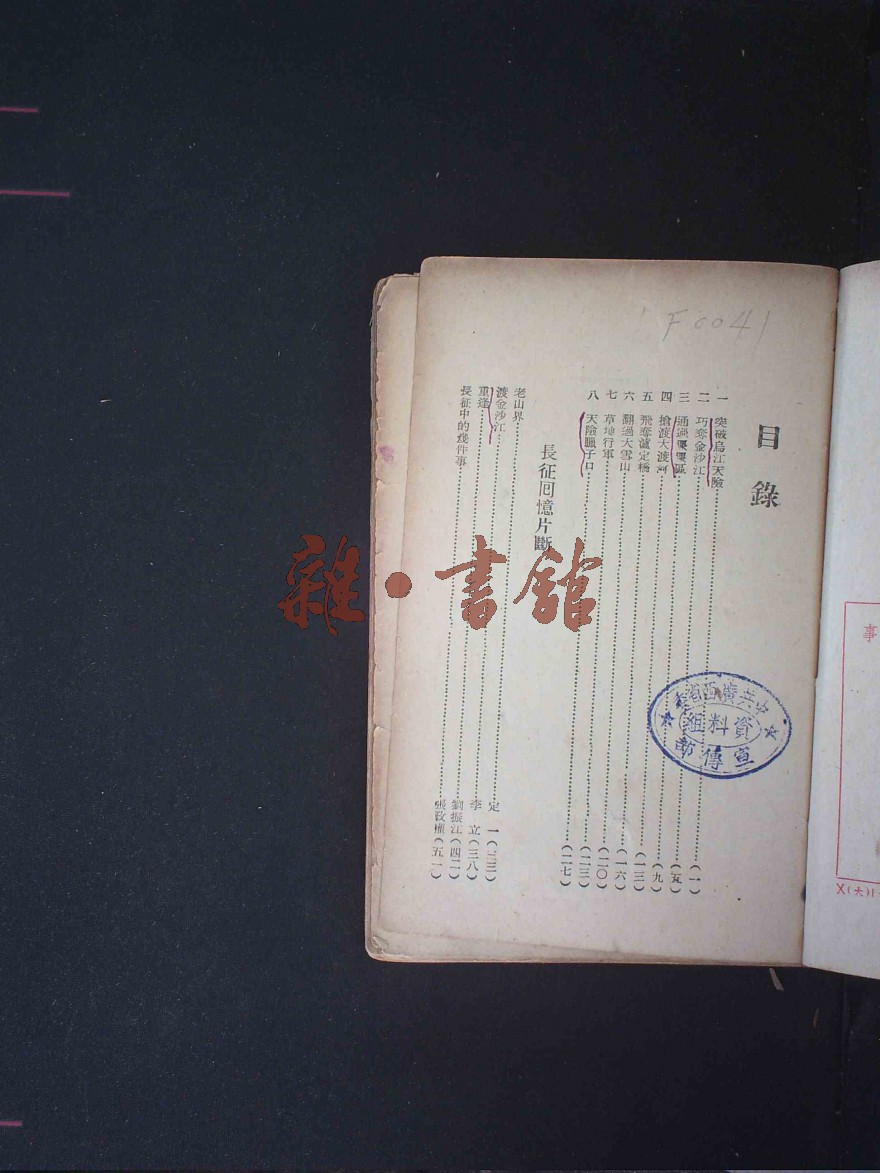 F0041
目錄
一 突破烏江天險……(一)
二 巧奪金沙江……(五)
三 通過 區……(九)
四 搶渡大渡河……(一三)
五 飛奪瀘定橋……(一六)
六 翻過大雪山……(二〇)
七 草地行軍……(二三)
八 天險臘子口……(二七)
長征囘憶片斷
老山界……定一(三三)
渡金沙江……李立(三八)
重逢……劉振江(四二)
長征中的幾件事……(五一)
中共廣西省委
資料組
宣傳部
雜·書館
事